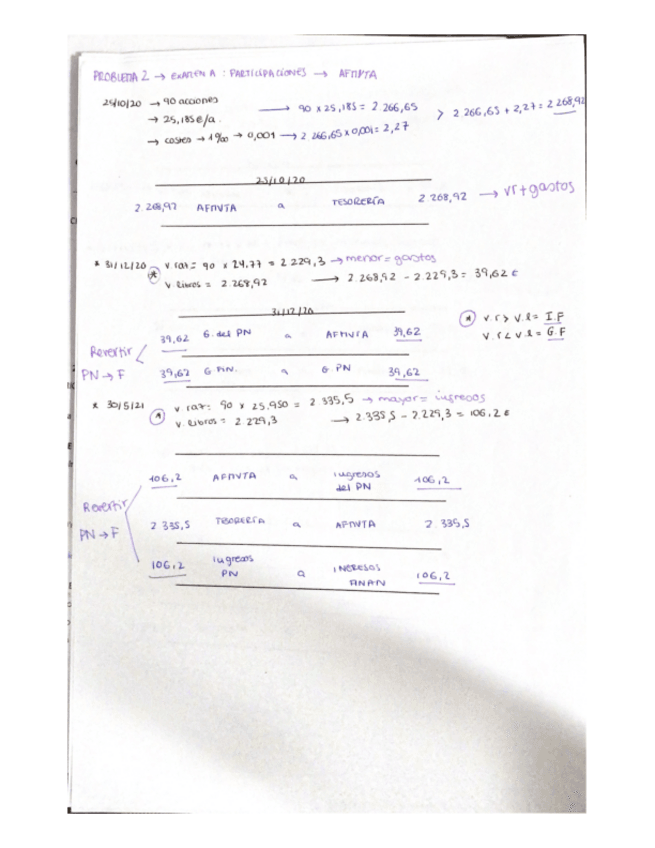 PROBLEMA 2 → EXAMEN A : PARTICIPACIONES → AFMVTA
→ 90 acciones → 90 x 25,185 = 2 266,65 > 2.266,65 + 2,27 = 2 268,92
→ 25,185 e/a.
→ costes → 1‰ → 0,001 → 2 266,65 x 0,001 = 2,27
2.268,92 AFMVTA a TESORERÍA 2 268,92 → vr + gastos
* 31/12/20 → v. raz = 90 x 24,77 = 2 229,3 → menor = gastos
v. libros = 2 268,92 → 2.268,92 - 2.229,3 = 39,62 €
31/12/20
v. r > v. l = I.F
v. r < v. l = G.F
39,62 G. del PN a AFMVTA 39,62
Revertir
PN → F
39,62 G FIN. a G PN 39,62
* 30/5/21 v raz = 90 x 25,950 = 2 335,5 → mayor = ingresos
v. libros = 2 229,3 → 2 335,5 - 2.229,3 = 106,2 €
106,2 AFMVTA a ingresos del PN 106,2
Revertir
PN → F
2 335,5 TESORERÍA a AFMVTA 2.335,5
106,2 ingresos PN a INGRESOS 106,2